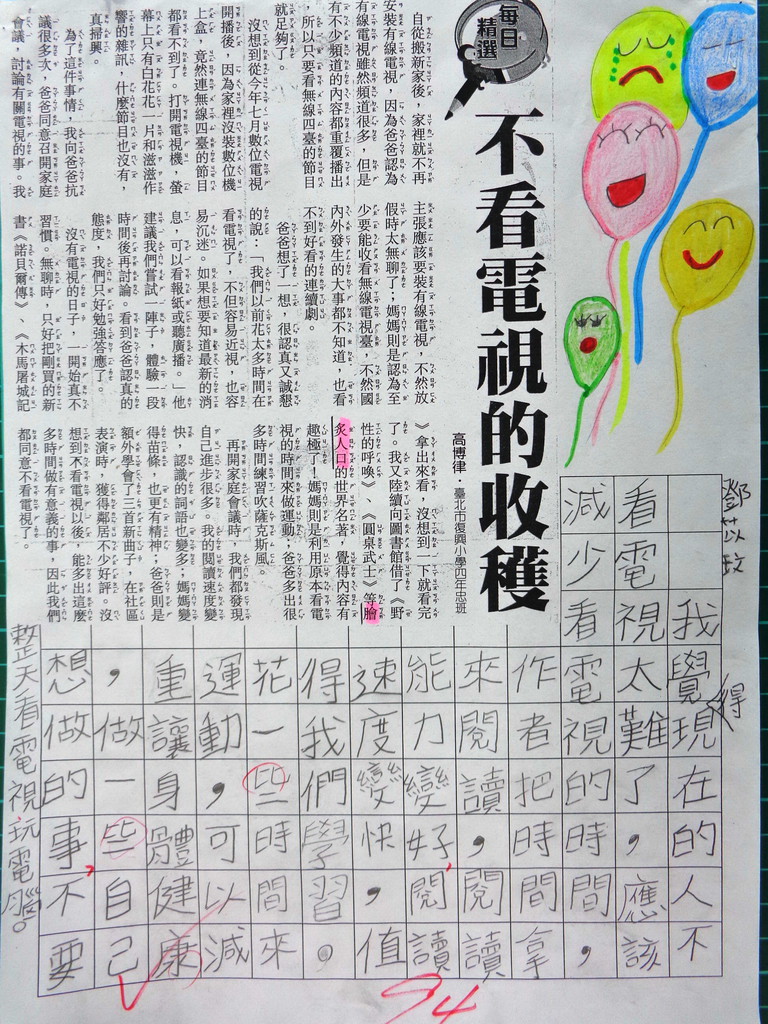 每日
精選
不看電視的收穫
高博律．臺北市復興小學四年忠班
自從搬新家後，家裡就不再
安裝有線電視，因為爸爸認為
有線電視雖然頻道很多，但是
有不少頻道的內容都重覆播出
，所以只要看無線四臺的節目
就足夠了。
沒想到從今年七月數位電視
開播後，因為家裡沒裝數位機
上盒，竟然連無線四臺的節目
都看不到了。打開電視機，螢
幕上只有白花花一片和滋滋作
響的雜訊，什麼節目也沒有，
真掃興。
為了這件事情，我向爸爸抗
議很多次，爸爸同意召開家庭
會議，討論有關電視的事。我
主張應該要裝有線電視，不然放
假時太無聊了；媽媽則是認為至
少要能收看無線電視臺，不然國
內外發生的大事都不知道，也看
不到好看的連續劇。
爸爸想了一想，很認真又誠懇
的說：「我們以前花太多時間在
看電視了，不但容易近視，也容
易沉迷。如果想要知道最新的消
息，可以看報紙或聽廣播。」他
建議我們嘗試一陣子，體驗一段
時間後再討論。看到爸爸認真的
態度，我們只好勉強答應了。
沒有電視的日子，一開始真不
習慣。無聊時，只好把剛買的新
書《諾貝爾傳》、《木馬屠城記
》拿出來看，沒想到一下就看完
了。我又陸續向圖書館借了《野
性的呼喚》、《圓桌武士》等膾
炙人口的世界名著，覺得內容有
趣極了！媽媽則是利用原本看電
視的時間來做運動；爸爸多出很
多時間練習吹薩克斯風。
再開家庭會議時，我們都發現
自己進步很多。我的閱讀速度變
快，認識的詞語也變多；媽媽變
得苗條，也更有精神；爸爸則是
額外學會了三首新曲子，在社區
表演時，獲得鄰居不少好評。沒
想到不看電視以後，能多出這麼
多時間做有意義的事，因此我們
都同意不看電視了。
鄧苡玟
我覺得現在的人不
看電視太難了，應該
減少看電視的時間，
作者把時間拿
來閱讀，閱讀
能力變好，閱讀
速度變快，值
得我們學習。
花一些時間來
運動，可以減
重讓身體健康
，做一些自己
想做的事，不要
整天看電視玩電腦。
94